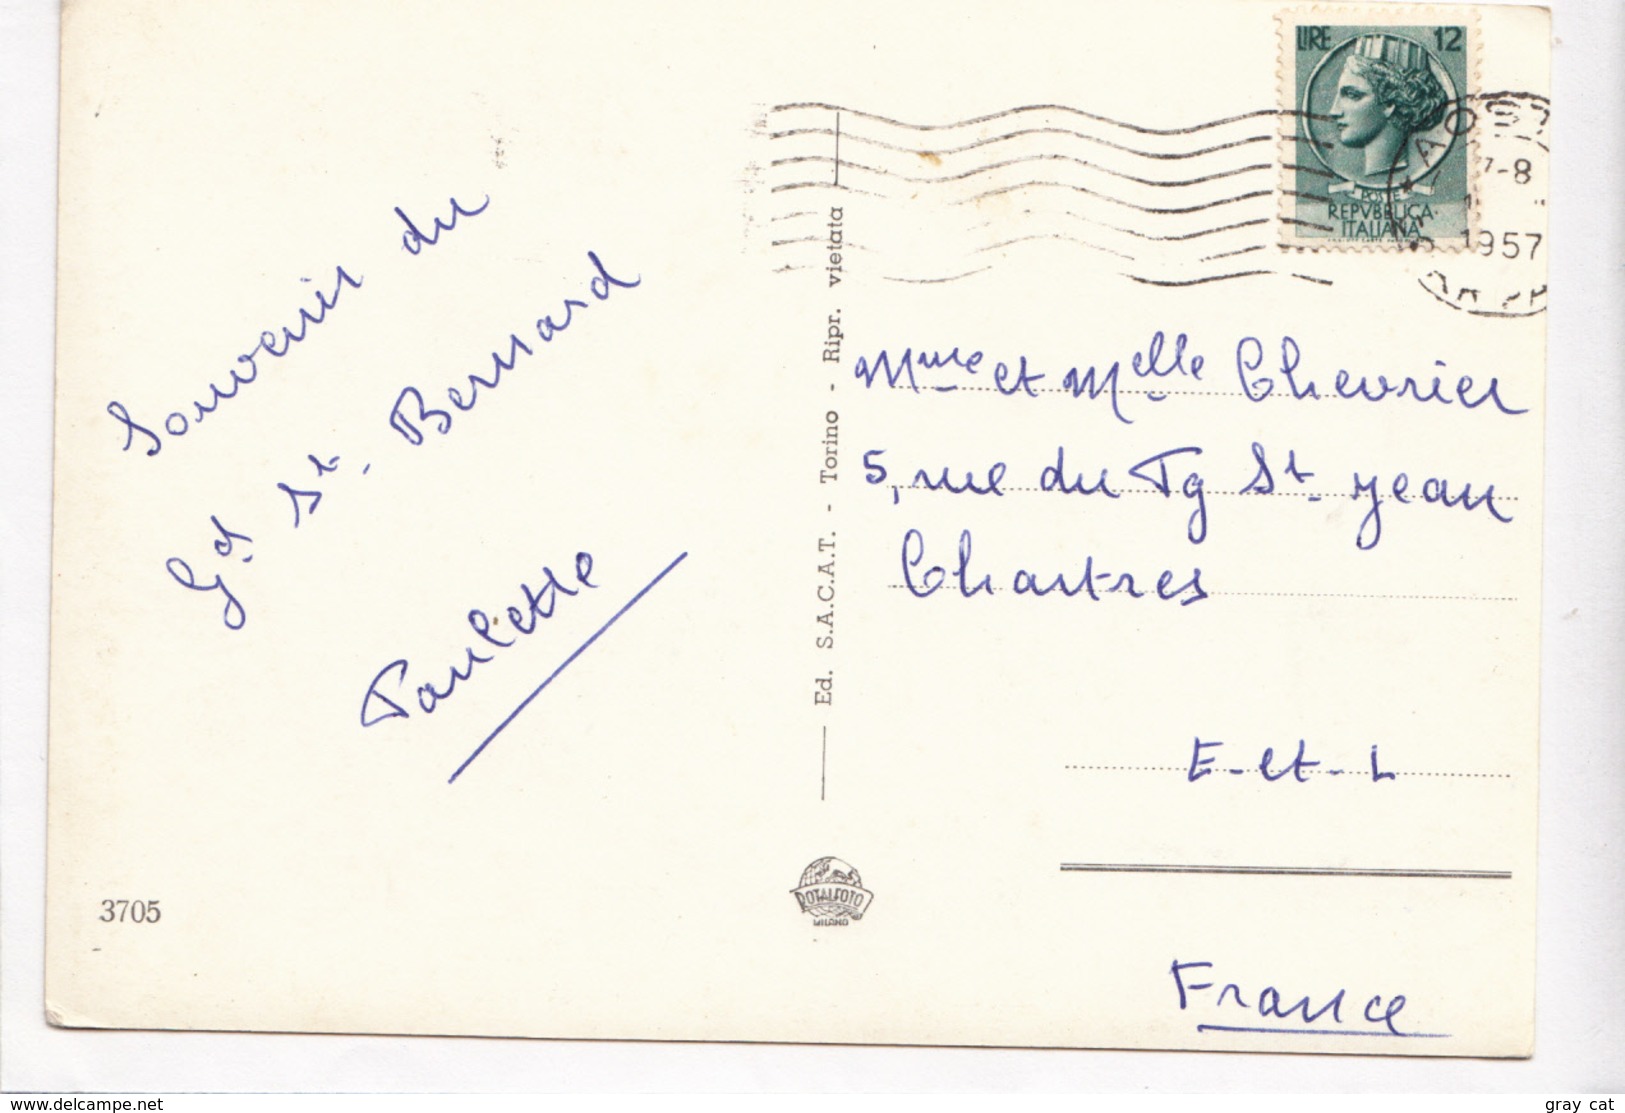 Souvenir du
Gd St. Bernard
Paulette
3705
Ed. S.A.C.A.T. - Torino - Ripr. vietata
ROTALFOTO
MILANO
LIRE 12
POSTE
REPVBBLICA
ITALIANA
1957
Mme et Melle Chevrier
5, rue du Fg St-Jean
Chartres
E-et-L
France
www.delcampe.net
gray cat